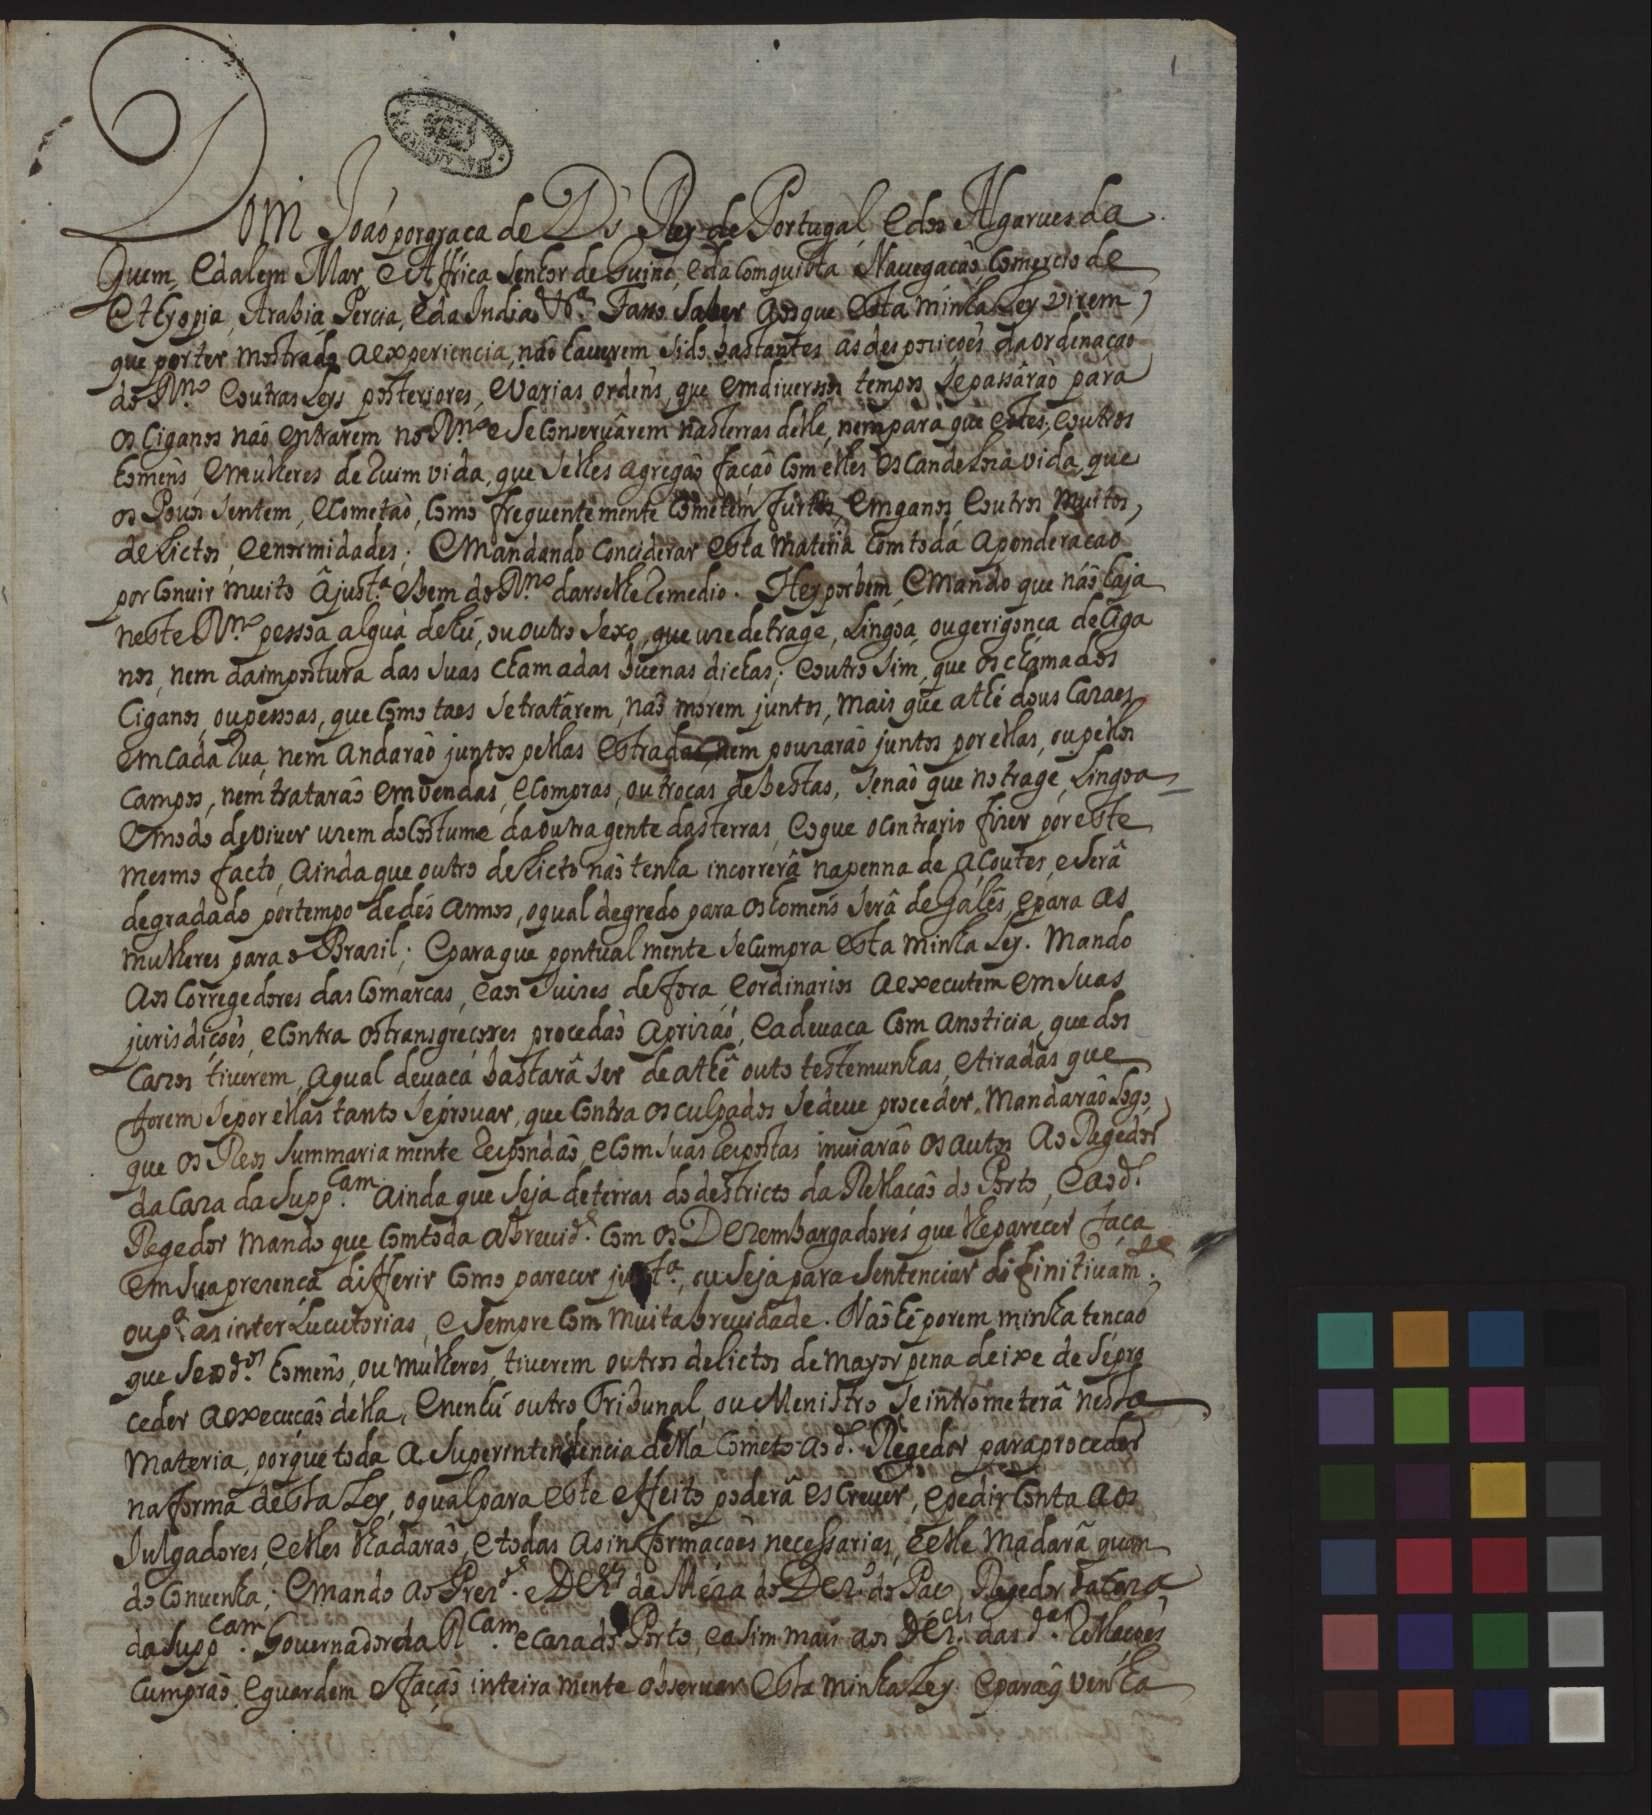 1
Dom João por graça de Ds Rey de Portugal, e dos Algarues da
quem, e dalem Mar, e Affrica Senhor de Guiné, e da Comquista Nauegacaõ, Comercio de
Ethyopia, Arabia Percia, e da India &ª. Faço Saber aos que esta minha Ley virem,
que por ter mostrado a experiencia, naõ hauerem sido bastantes as despoziçoẽs da ordenaçaõ
do Rnº e outras Leys posteriores, e varias ordeñs, que em diuersos tempos se passâraõ para
os Ciganos naõ entrarem no Rnº e se Conseruârem nas terras delle, nem para que estes, e outros
homeñs, e mulheres de Ruim vida, que se lhes agregaõ façaõ Com elles escandeloza vida, que
os Pouos Sentem, e Cometaõ, Como frequentemente Cometem furtos, emganos, e outros muitos,
delictos, e enormidades; e mandando Conciderar esta materia Com toda a ponderacaõ
por Conuir muito â justª. e bem do Rnº. darselhe Remedio. Hey por bem, e mando que naõ haja
neste Rnº. pessoa alguã de hũ, ou outro Sexo, que uze de trage, Lingoa, ou gerigonça de Ciga
nos, nem da impostura das suas Chamadas buenas dichas; e outro sim, que os chamados
Ciganos, ou pessoas, que Como taes se tratârem, naõ morem juntos, mais que athé dous Cazaes
em Cada Rua, nem andarâõ juntos pellas estradas, nem pouzarâõ juntos por ellas, ou pellos
Campos, nem tratarâõ em vendas, e Compras, ou trocas de bestas, senaõ que no trage, Lingoa
e modo de viver uzem do Costume da outra gente das terras, e o que o Contrario fizer por este
mesmo facto, ainda que outro delicto naõ tenha incorrerâ na penna de açoutes, e serâ
degradado por tempo de dés annos, o qual degredo para os homeñs serâ de Galês, e para as
mulheres para o Brazil; e para que pontualmente se Cumpra esta minha Ley. Mando
aos Corregedores das Comarcas, e aos Juizes de fora, e ordinarios a executem em suas
jurisdicoẽs, e contra os transgreçores procedaõ a prizaõ, e a deuaca Com a noticia, que dos
Cazos tiuerem, a qual deuaca bastarâ ser de athê outo testemunhas, e tiradas que
forem se por ellas tanto se prouar, que Contra os culpados se deue proceder, Mandarâõ Logo,
que os Reos Summariamente Respondaõ, e Com suas Repostas inuiarâõ os autos ao Regedor
da Caza da Suppcam. ainda que seja de terras do destricto da Rellacaõ do Porto, e ao dº.
Regedor mando que Com toda a breuidê. Com os Dezembargadores que lhe parecer faça
em sua prezença differir Como parecer justª., ou seja para Sentenciar difinitiuamte.
ou pª. as inter Lucutorias, e sempre Com muita breuidade. Naõ hê porem minha tencaõ
que se os dos. homeñs, ou mulheres, tiuerem outros delictos de mayor pena deixe de se pro
ceder a execucaõ della, e nenhũ outro Tribunal, ou Menistro se intrometerâ nesta
materia, porque toda a Superintendencia della Cometo ao dº. Regedor para proceder
na forma desta Ley, o qual para este effeito poderâ escreuer, e pedir Conta aos
Julgadores, e elles lha darâõ, e todas as informacoẽs necessarias, e elle madarâ quan
do Conuenha; e mando ao Prezdê. e Dezes da Meza do Dezº. do Paço, Regedor da Caza
da Suppcam. Gouernador da Rcam. e Caza do Porto, e asim mais aos Dezes. das das. Rellaçoẽs
Cumpraõ, e guardem e façaõ inteiramente obseruar esta minha Ley. e para q̃ venha